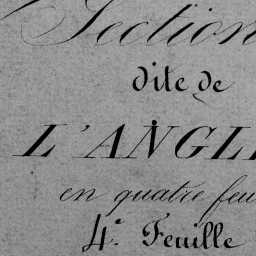 Section
dite de
L'ANGL
en quatre feu
4e. Feuille